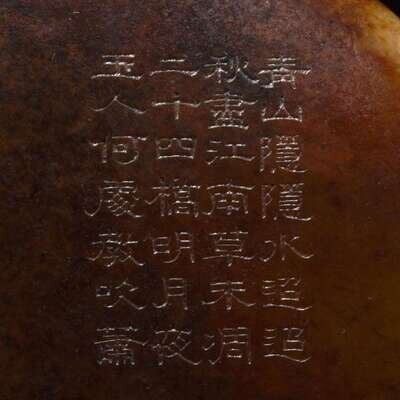 青山隱隱水迢迢
秋盡江南草未凋
二十四橋明月夜
玉人何處教吹蕭